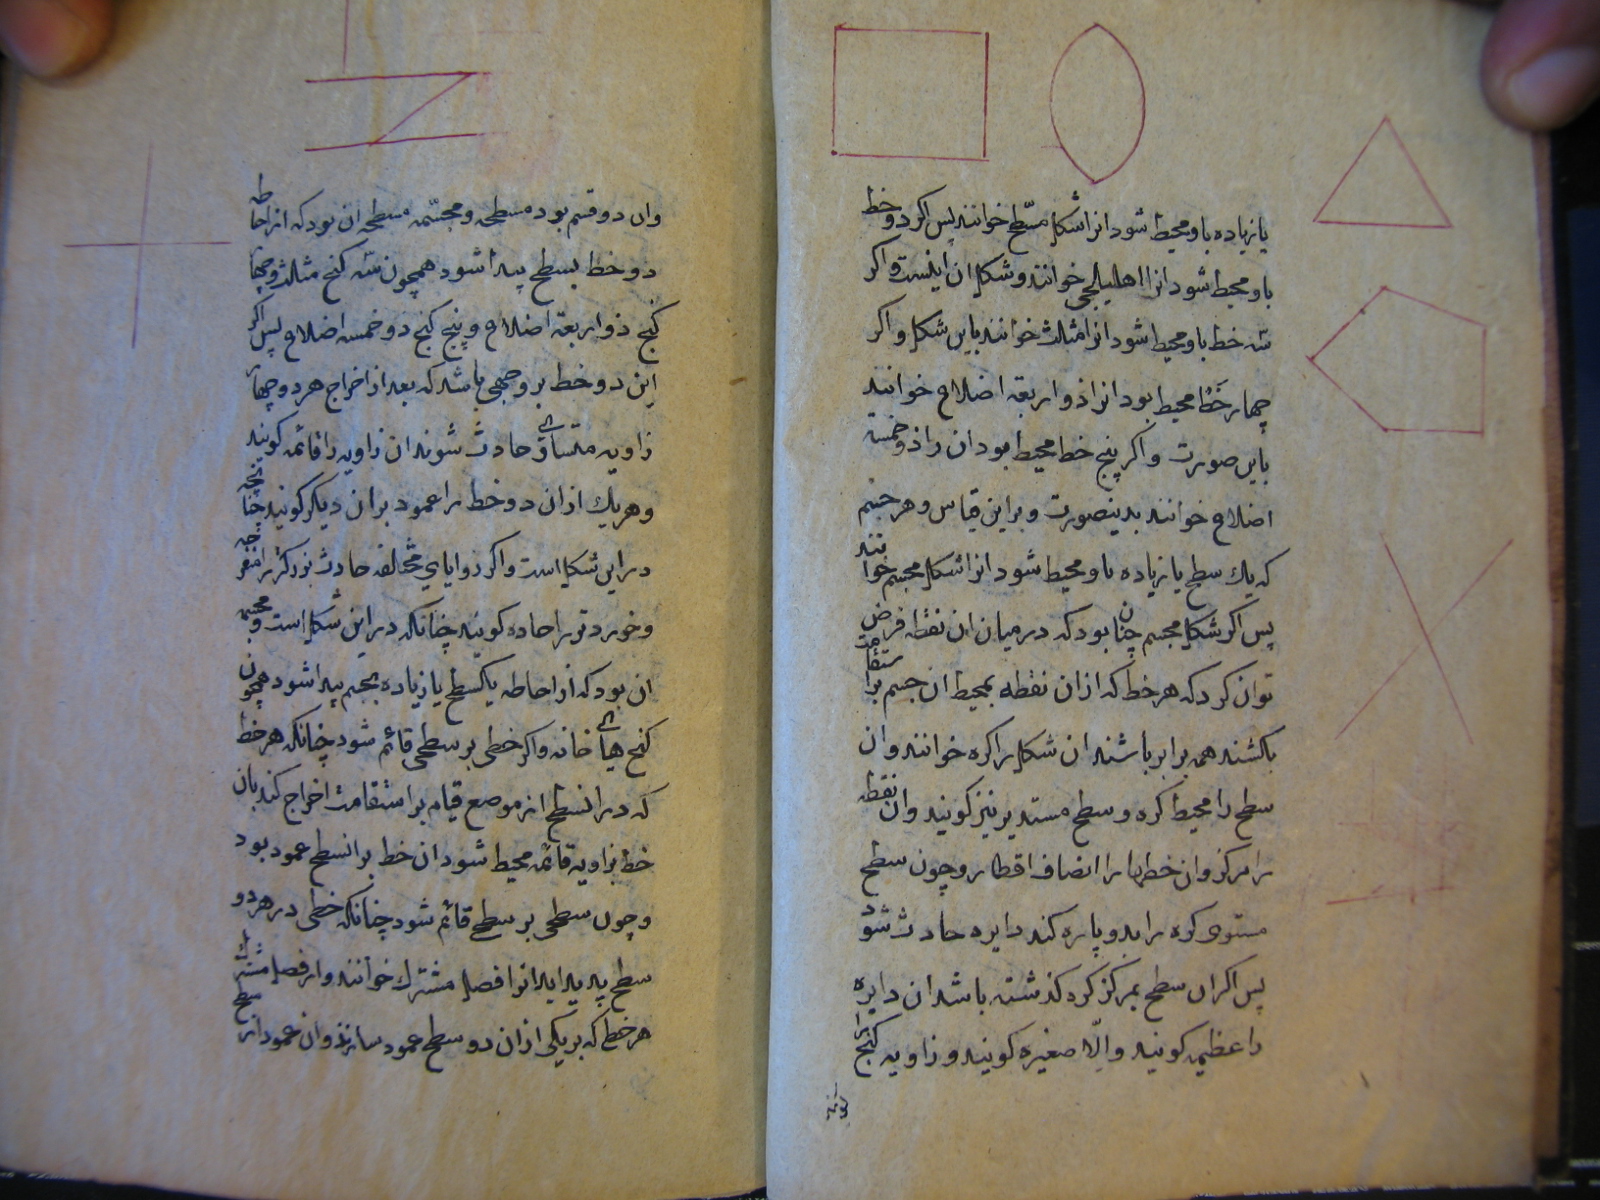 یا زیاده باو محیط شود انرا شکل مسطّح خوانند پس اکر دو خط
باو محیط شود انرا اهلیلجی خوانند و شکل ان اینست و اکر
سه خط باو محیط شود انرا مثلث خوانند باین شکل و اکر
چهار خط محیط بود انرا ذو اربعة اضلاع خوانند
باین صورت و اکر پنج خط محیط بود ان را ذو خمسة
اضلاع خوانند بدینصورت و براین قیاس و هر جسم
که یک سطح یا زیاده باو محیط شود انرا شکل مجسم خوانند
پس اکر شکل مجسم چنان بود که در میان ان نقطه فرض
توان کرد که هر خط که ازان نقطه بمحیط ان جسم براستقامت
بکشند همه برابر باشند ان شکل را کره خوانند و ان
سطح را محیط کره و سطح مستدیر نیز کویند و ان نقطه
را مرکز و ان خطها را انصاف اقطار و چون سطح
مستوی کره را بدو پاره کند دایره حادث شود
پس اکران سطح بمرکز کره کذشته باشد ان دایره
را عظیمه کویند والّا صغیره کویند و زاویه کنج را
کویند
وان دو قسم بود مسطحه و مجسّمه مسطحه ان بود که از احاطه
دو خط بسطح پیدا شود همچون سه کنج مثلث و چهار
کنج ذو اربعة اضلاع و پنج کنج ذو خمسه اضلاع پس اکر
این دو خط بر وجهی باشد که بعد از اخراج هر دو چهار
زاویه متساوی حادث شوند ان زاویه را قائمه کویند
و هریک ازان دو خط را عمود بران دیکر کویند چنانچه
دراین شکل است واکر زوایای مختلفه حادث بزرکتر را منفرجه
و خوردتر را حاده کویند چنانکه دراین شکل است و مجسمه
ان بود که از احاطه یکسطح یا زیاده بجسم پیدا شود همچون
کنج های خانه واکر خطی بر سطحی قائم شود چنانکه هر خط
که درانسطح از موضع قیام براستقامت اخراج کند بان
خط بزاویه قائمه محیط شود ان خط برانسطح عمود بود
و چون سطحی بر سطحی قائم شود چنانکه خطی در هر دو
سطح پدید اید انرا فصل مشترک خوانند و از فصل مشترک
هر خط که بریکی ازان دو سطح عمود سازند و ان عمود انر سطح